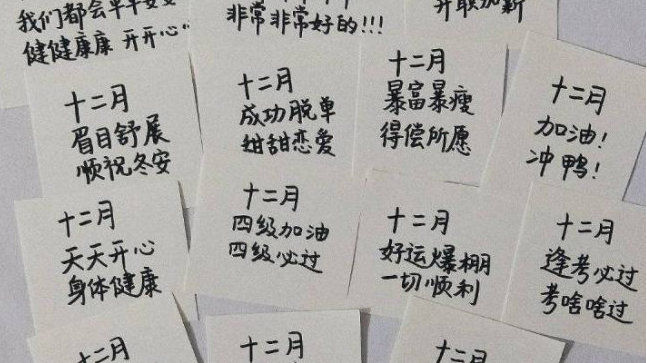 我们都会平平安安
健健康康 开开心心"
非常非常好的!!!
升职加薪
十二月
眉目舒展
顺祝冬安
十二月
成功脱单
甜甜恋爱
十二月
暴富暴瘦
得偿所愿
十二月
加油!
冲鸭!
十二月
天天开心
身体健康
十二月
四级加油
四级必过
十二月
好运爆棚
一切顺利
十二月
逢考必过
考啥啥过
十二月
十二月
十二月